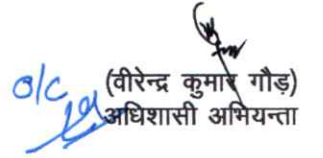 O/C
(वीरेन्द्र कुमार गौड़)
अधिशासी अभियन्ता